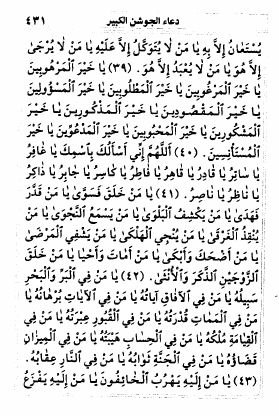 دعاء الجوشن الكبير ٤٣١
يُسْتَعانُ إِلاَّ بِهِ يا مَنْ لا يُتَوَكَّلُ إِلاَّ عَلَيْهِ يا مَنْ لا يُرْجَىٰ
إِلاَّ هُوَ يا مَنْ لا يُعْبَدُ إِلاَّ هُوَ . (٣٩) يا خَيْرَ الْمَرْهُوبِينَ
يا خَيْرَ الْمَرْغُوبِينَ يا خَيْرَ الْمَطْلُوبِينَ يا خَيْرَ الْمَسْؤُولِينَ
يا خَيْرَ الْمَقْصُودِينَ يا خَيْرَ الْمَذْكُورِينَ يا خَيْرَ
الْمَشْكُورِينَ يا خَيْرَ الْمَحْبُوبِينَ يا خَيْرَ الْمَدْعُوِّينَ يا خَيْرَ
الْمُسْتَأْنِسِينَ . (٤٠) اَللَّهُمَّ إِنِّي أَسْأَلُكَ بِاسْمِكَ يا غافِرُ
يا ساتِرُ يا قادِرُ يا قاهِرُ يا فاطِرُ يا كاسِرُ يا جابِرُ يا ذاكِرُ
يا ناظِرُ يا ناصِرُ . (٤١) يا مَنْ خَلَقَ فَسَوَّىٰ يا مَنْ قَدَّرَ
فَهَدَىٰ يا مَنْ يَكْشِفُ الْبَلْوَىٰ يا مَنْ يَسْمَعُ النَّجْوَىٰ يا مَنْ
يُنْقِذُ الْغَرْقَىٰ يا مَنْ يُنْجِي الْهَلْكَىٰ يا مَنْ يَشْفِي الْمَرْضَىٰ
يا مَنْ أَضْحَكَ وَأَبْكَىٰ يا مَنْ أَماتَ وَأَحْيا يا مَنْ خَلَقَ
الزَّوْجَيْنِ الذَّكَرَ وَالْأُنْثَىٰ . (٤٢) يا مَنْ فِي الْبَرِّ وَالْبَحْرِ
سَبِيلُهُ يا مَنْ فِي الْآفاقِ آياتُهُ يا مَنْ فِي الْآياتِ بُرْهانُهُ يا
مَنْ فِي الْمَماتِ قُدْرَتُهُ يا مَنْ فِي الْقُبُورِ عِبْرَتُهُ يا مَنْ فِي
الْقِيامَةِ مُلْكُهُ يا مَنْ فِي الْحِسابِ هَيْبَتُهُ يا مَنْ فِي الْمِيزانِ
قَضاؤُهُ يا مَنْ فِي الْجَنَّةِ ثَوابُهُ يا مَنْ فِي النَّارِ عِقابُهُ .
(٤٣) يا مَنْ إِلَيْهِ يَهْرُبُ الْخائِفُونَ يا مَنْ إِلَيْهِ يَفْزَعُ